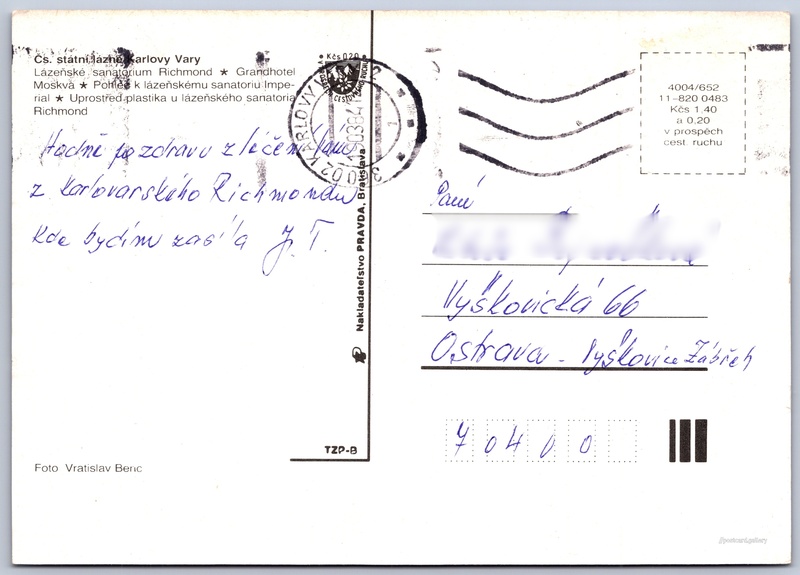 Čs. státní lázně Karlovy Vary
Lázeňské sanatorium Richmond ★ Grandhotel
Moskva ★ Pohled k lázeňskému sanatoriu Impe-
rial ★ Uprostřed plastika u lázeňského sanatoria
Richmond
Hodně pozdravů z léčení
z Karlovarského Richmondu
kde bydlím zasílá J. T.
Foto Vratislav Beric
Nakladatelství PRAVDA, Bratislava
TZP-B
Kčs 0,20
360 02 KARLOVY VARY
4004/652
11–820 0483
Kčs 1,40
a 0,20
v prospěch
cest. ruchu
Paní
Vyškovická 66
Ostrava - Vyškovice Zábřeh
70400
//postcard.gallery